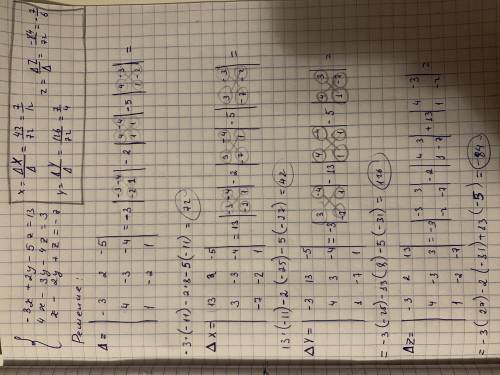 -3x + 2y - 5z = 13
4x - 3y - 4z = 3
x - 2y + z = -7
x = ΔX/Δ = 42/72 = 7/12
y = ΔY/Δ = 126/72 = 7/4
z = ΔZ/Δ = -84/72 = -7/6
Решение:
-3 2 -5
Δ = 4 -3 -4 = -3 |-3 -4; -2 1| - 2 |4 -4; 1 1| - 5 |4 -3; 1 -2| =
1 -2 1
-3·(-11) - 2·8 - 5(-11) = 72
13 2 -5
ΔX = 3 -3 -4 = 13 |-3 -4; -2 1| - 2 |3 -4; -7 1| - 5 |3 -3; -7 -2| =
-7 -2 1
13·(-11) - 2(-25) - 5(-27) = 42
-3 13 -5
ΔY = 4 3 -4 = -3 |3 -4; -7 1| - 13 |4 -4; 1 1| - 5 |4 3; 1 -7| =
1 -7 1
= -3(-25) - 13(8) - 5(-31) = 126
-3 2 13
ΔZ = 4 -3 3 = -3 |-3 3; -2 -7| - 2 |4 3; 1 -7| + 13 |4 -3; 1 -2| =
1 -2 -7
= -3(27) - 2(-31) + 13(-5) = -84